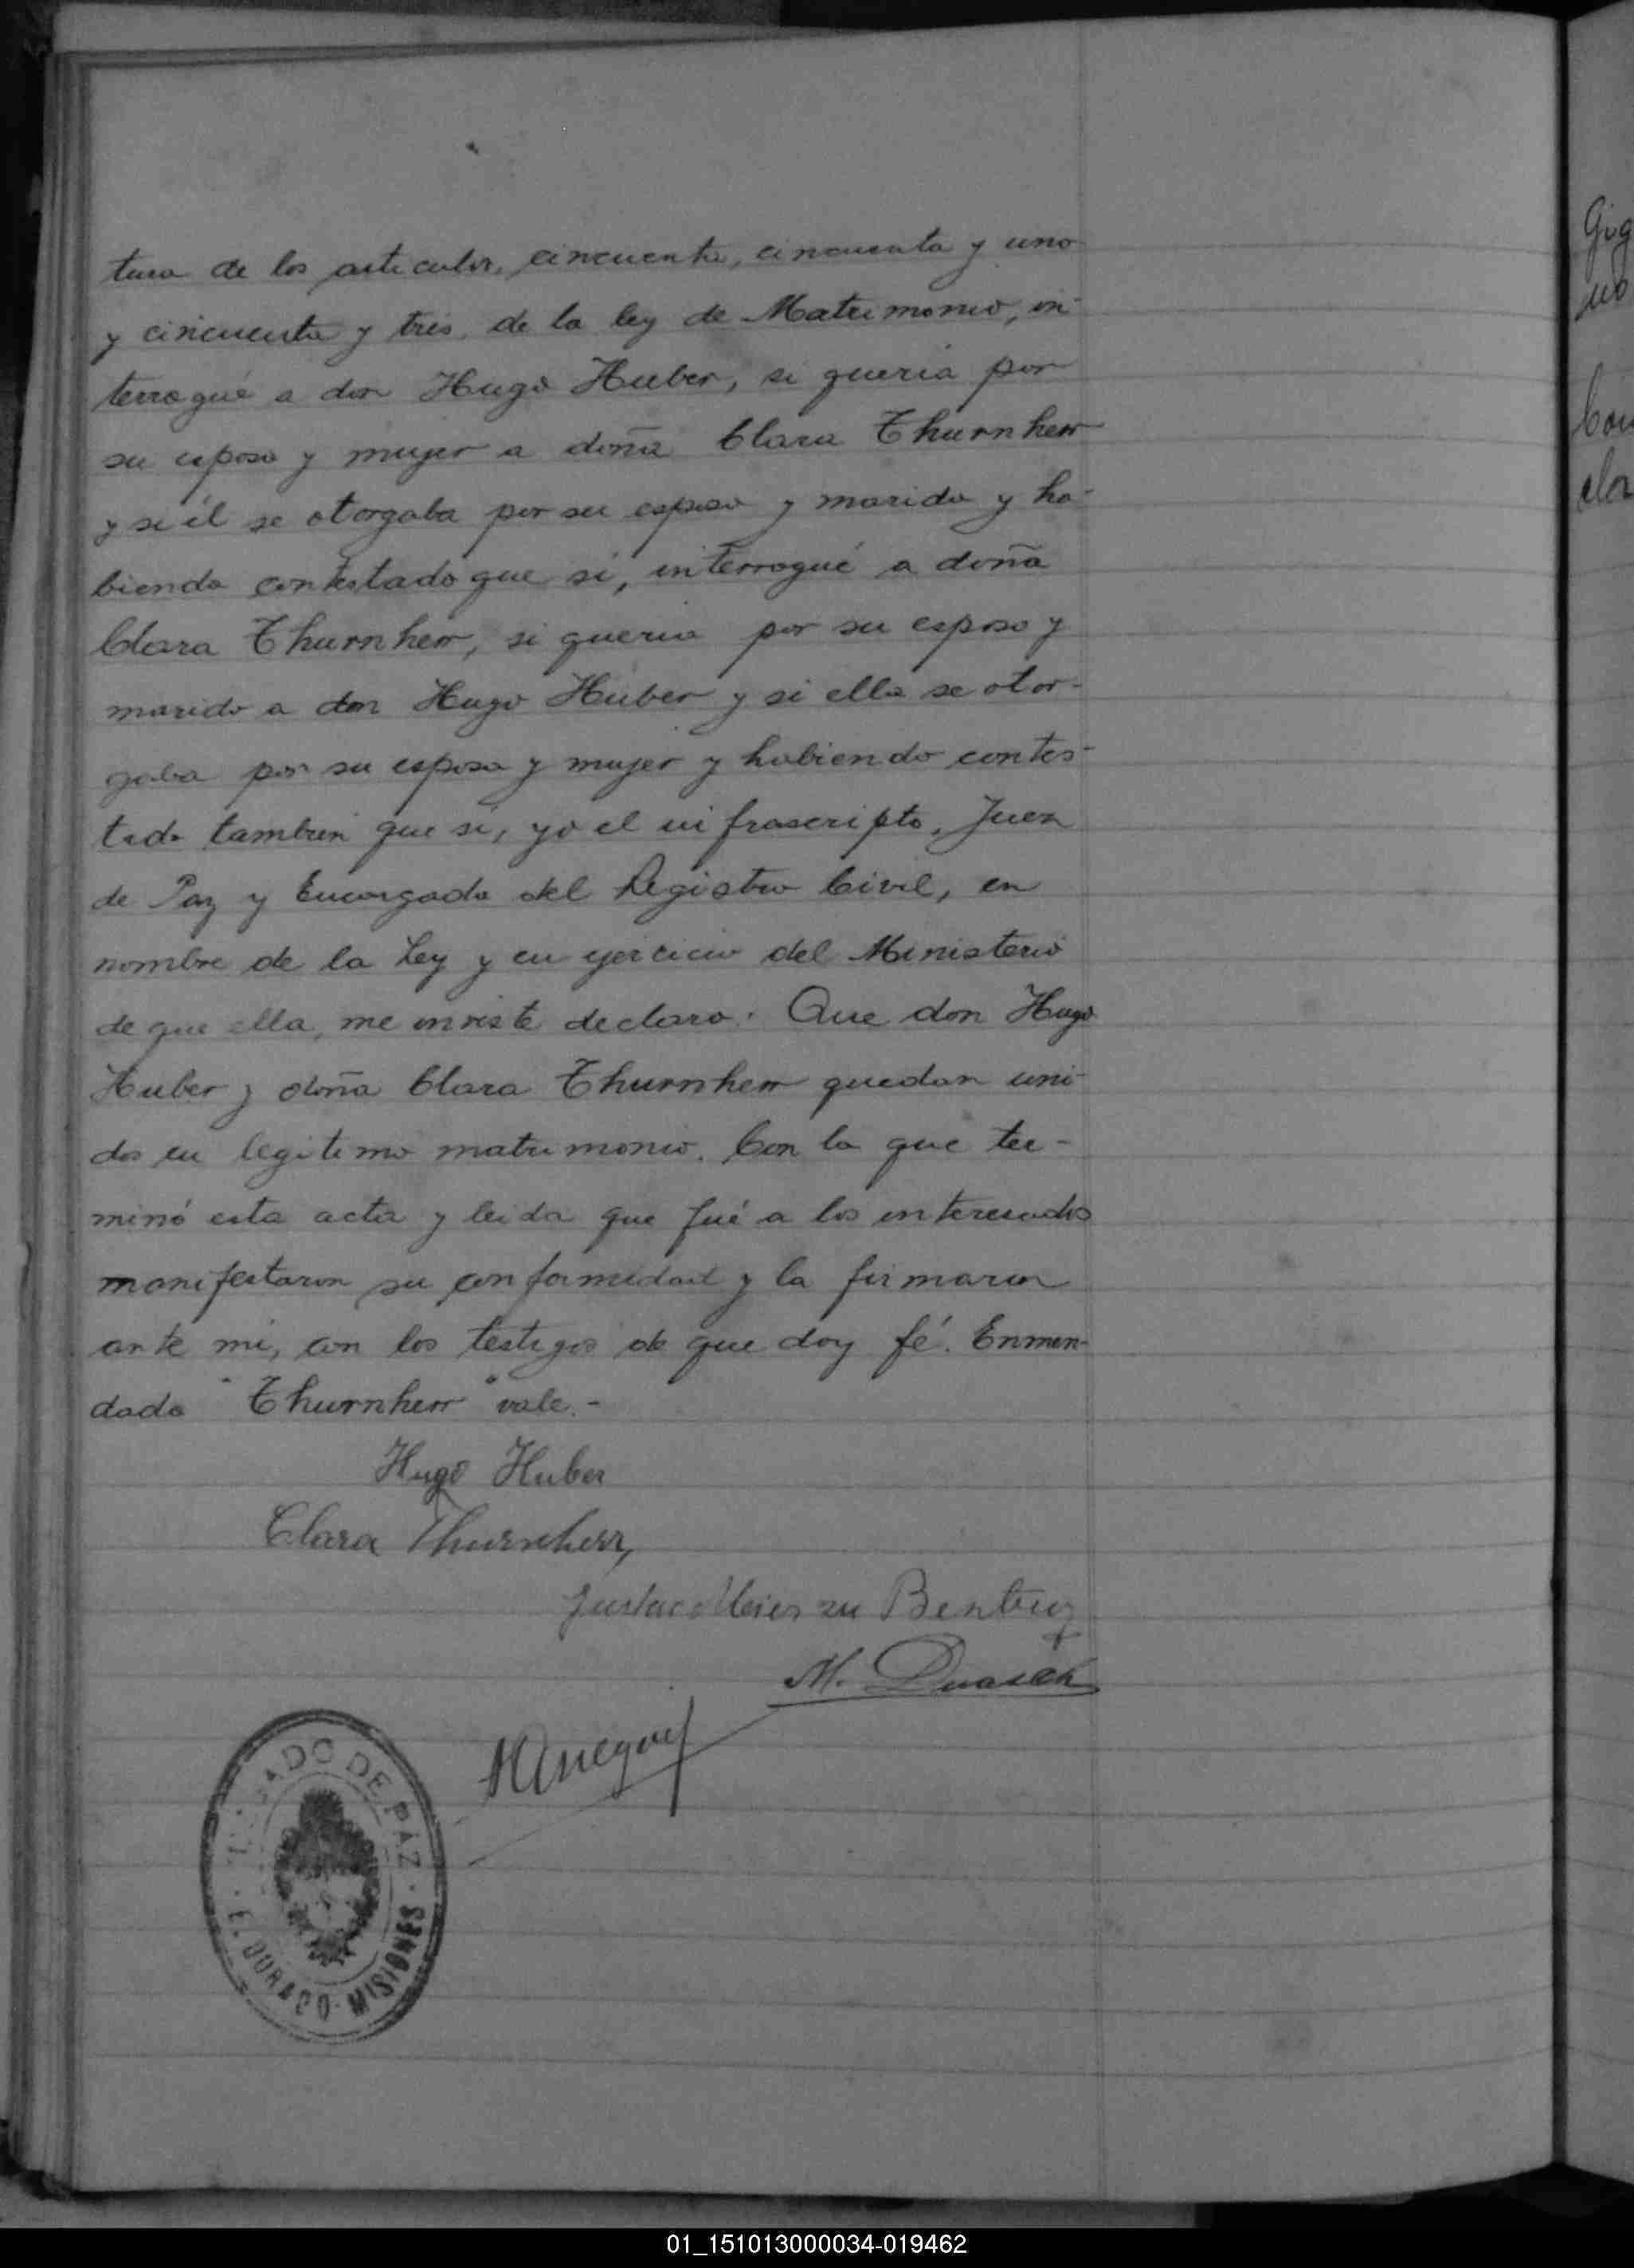 tura de los articulos, cincuenta, cincuenta y uno
y cincuenta y tres, de la ley de Matrimonio, in-
terrogué a don Hugo Huber, si queria por
su esposa y mujer a doña Clara Thurnherr
y si él se otorgaba por su esposo y marido y ha-
biendo contestado que si, interrogué a doña
Clara Thurnherr, si queria por su esposo y
marido a don Hugo Huber y si ella se otor-
gaba por su esposa y mujer y habiendo contes-
tado tambien que si, yo el infrascripto, Juez
de Paz y Encargado del Registro Civil, en
nombre de la Ley y en ejercicio del Ministerio
de que ella, me inviste declaro: Que don Hugo
Huber y doña Clara Thurnherr quedan uni-
dos en legitimo matrimonio. Con la que ter-
minó esta acta y leida que fué a los interesados
manifestaron su conformidad y la firmaron
ante mi, con los testigos de que doy fé. Enmen-
dado "Thurnherr" vale.-
Hugo Huber
Clara Thurnherr,
Gustav Meier zu Bentrup
M.
JUZGADO DE PAZ
ELDORADO - MISIONES
01_151013000034-019462